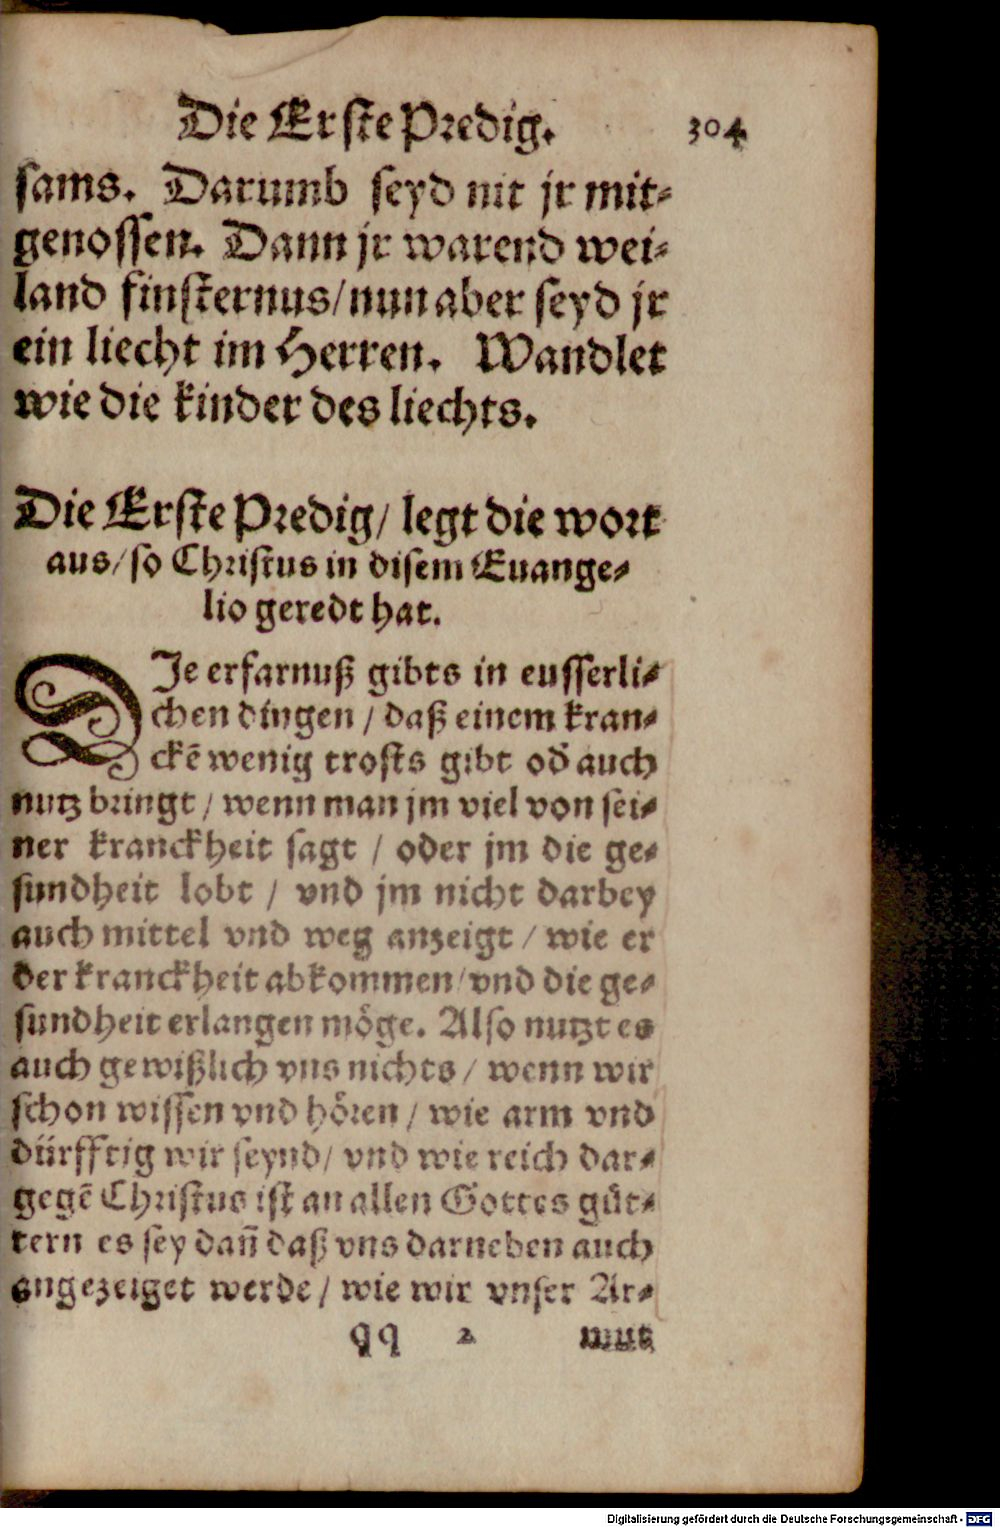 Die Erste Predig. 304
sams. Darumb seyd nit jr mit⸗
genossen. Dann jr warend wei⸗
land finsternus/nun aber seyd jr
ein liecht im Herren. Wandlet
wie die kinder des liechts.
Die Erste Predig/ legt die wort
aus/so Christus in disem Euange⸗
lio geredt hat.
DJe erfarnuß gibts in eusserli⸗
chen dingen / daß einem kran⸗
ckē wenig trosts gibt od̄ auch
nutz bringt / wenn man jm viel von sei⸗
ner kranckheit sagt / oder jm die ge⸗
sundheit lobt / vnd jm nicht darbey
auch mittel vnd weg anzeigt / wie er
der kranckheit abkommen/vnd die ge⸗
sundheit erlangen möge. Also nutzt es
auch gewißlich vns nichts / wenn wir
schon wissen vnd hören / wie arm vnd
dürfftig wir seynd/ vnd wie reich dar⸗
gegē Christus ist an allen Gottes güt⸗
tern es sey dañ daß vns darneben auch
angezeiget werde / wie wir vnser Ar⸗
qq 2 mut
Digitalisierung gefördert durch die Deutsche Forschungsgemeinschaft - DFG